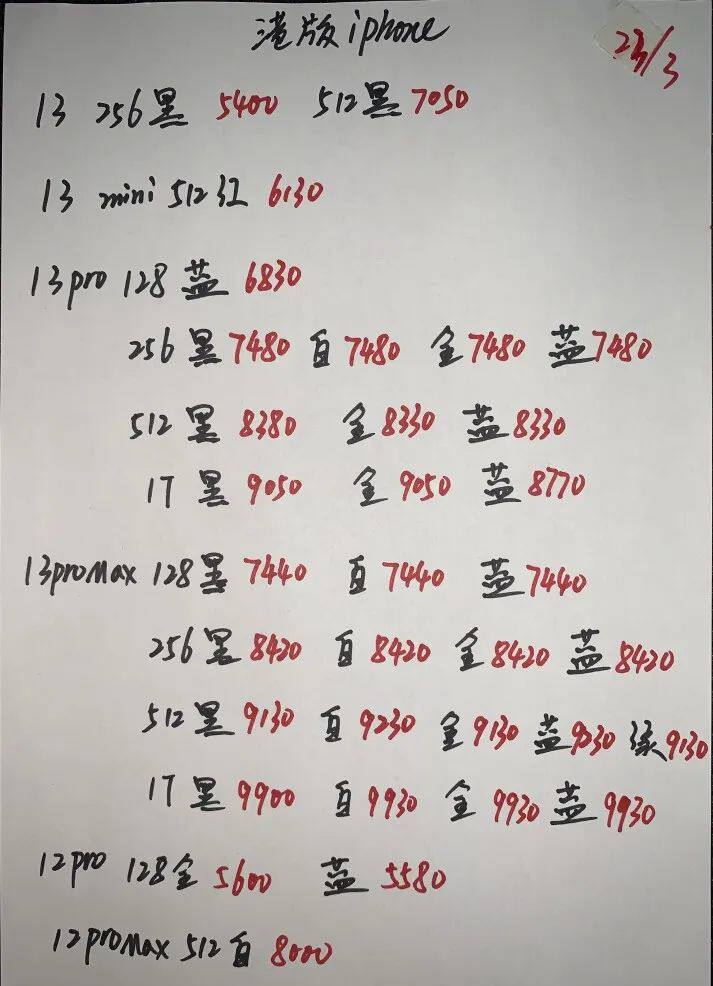 港版iphone
23/3
13 256黑 5400 512黑 7050
13 mini 512红 6130
13pro 128 蓝 6830
256 黑 7480 白 7480 金 7480 蓝 7480
512 黑 8380 金 8330 蓝 8330
1T 黑 9050 金 9050 蓝 8770
13proMax 128 黑 7440 白 7440 蓝 7440
256 黑 8420 白 8420 金 8420 蓝 8420
512 黑 9130 白 9230 金 9130 蓝 9230 绿 9130
1T 黑 9900 白 9930 金 9930 蓝 9930
12pro 128金 5600 蓝 5580
12proMax 512白 8000